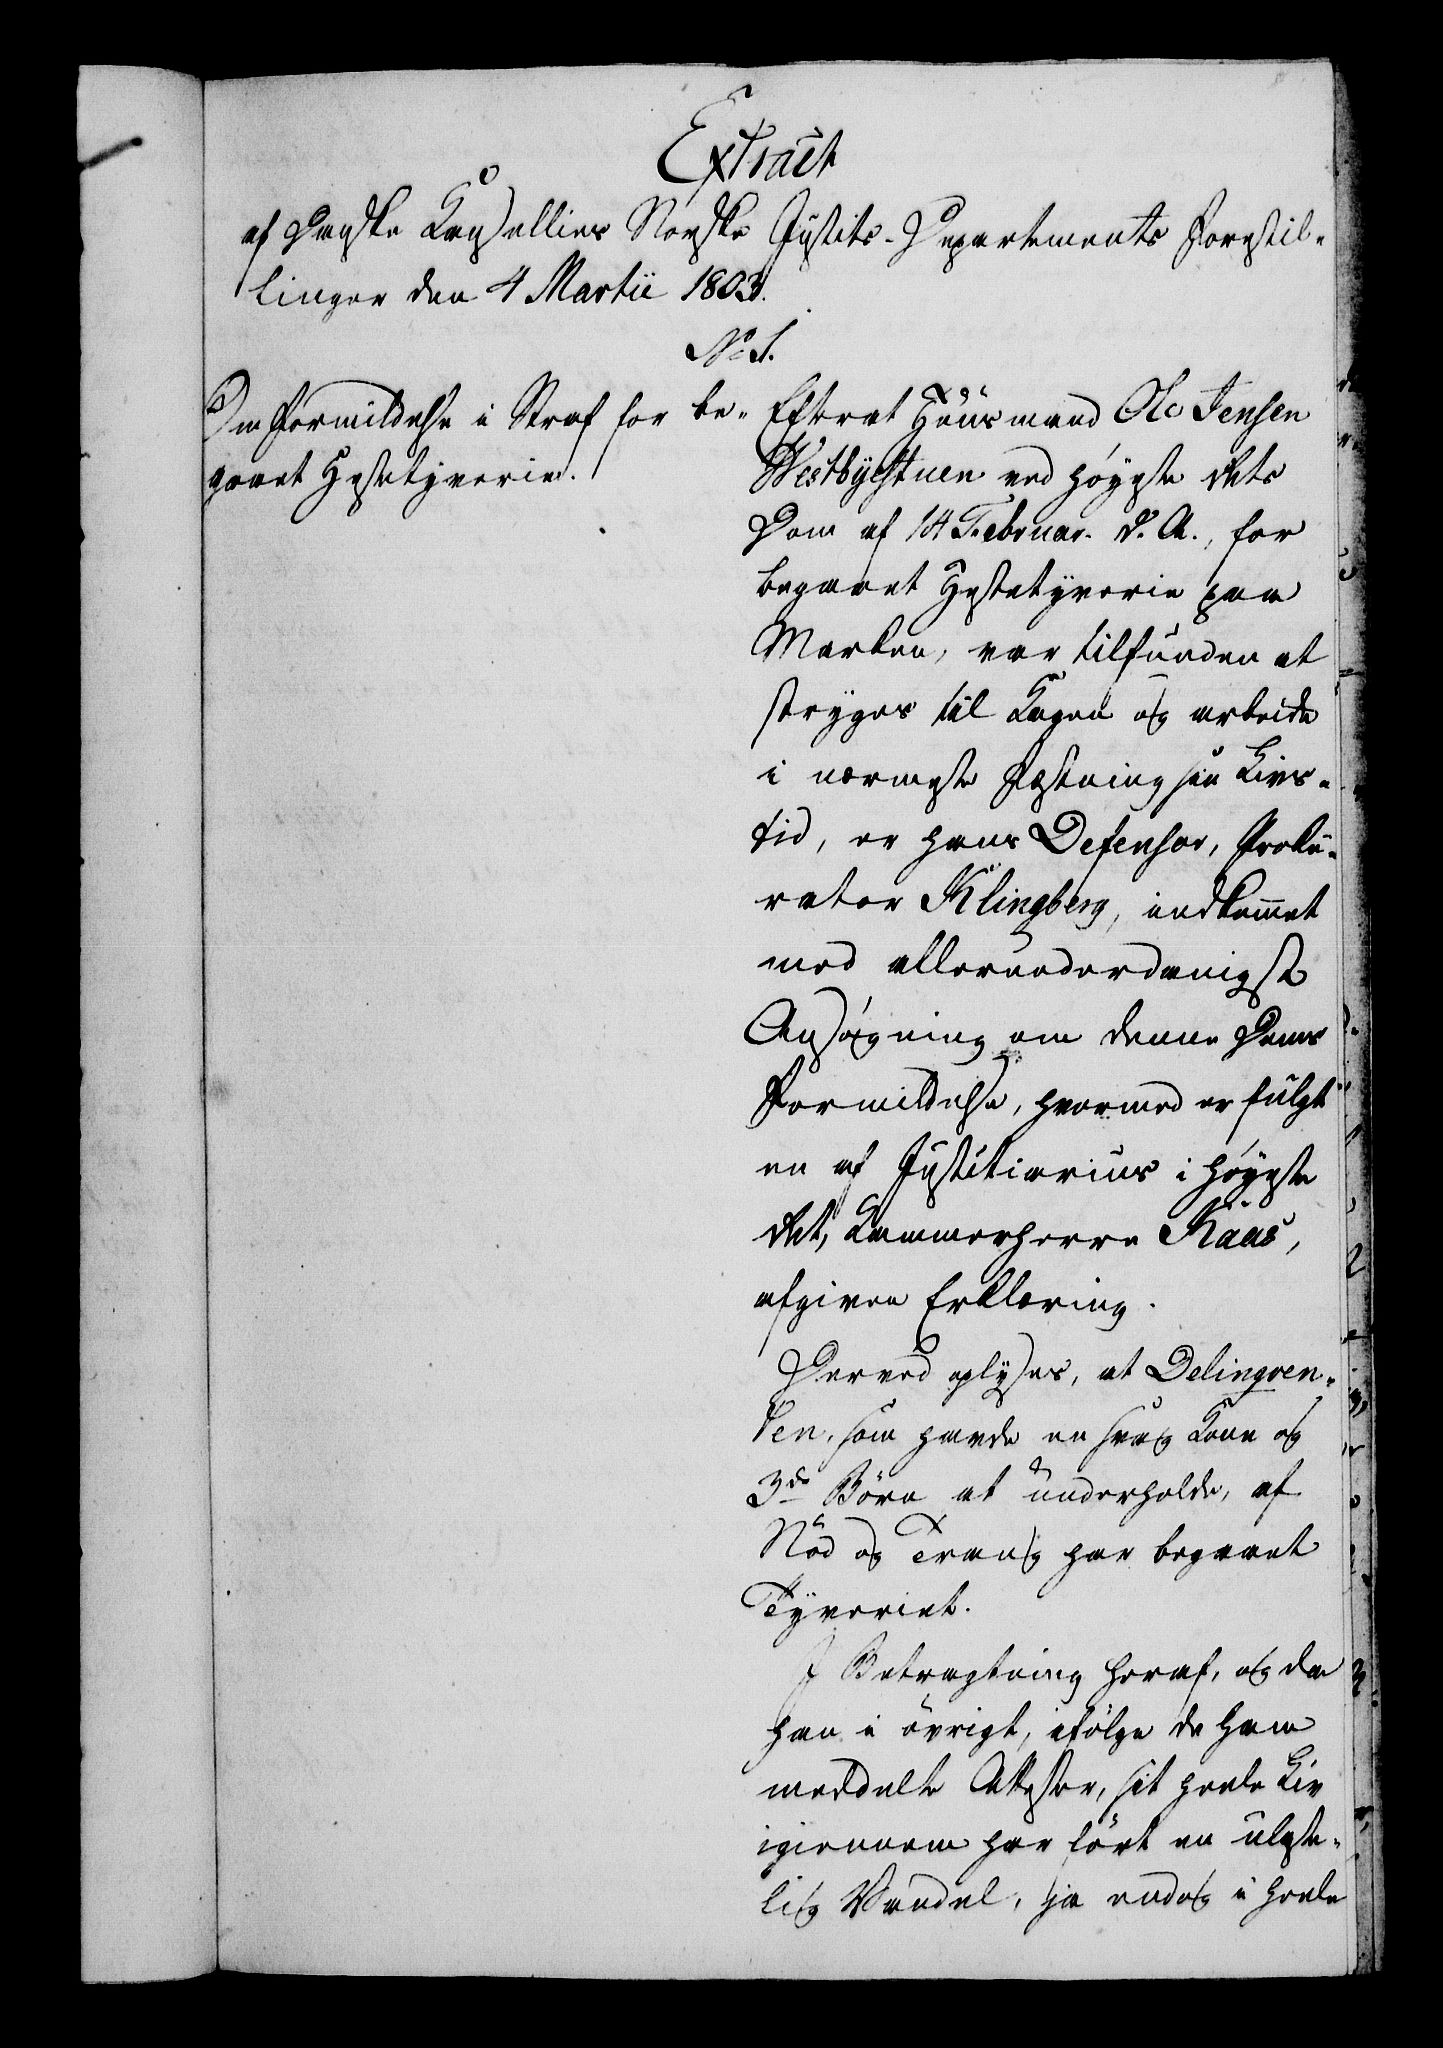 Extract
af Danske Cancelliets Norske Justits-Departements Forestil-
linger den 4 Martii 1803.
No 1.
Om Formildelse i Straf for be-
gaaet Hestetyverie.
Efterat Huusmand Ole Jensen
Westbyestuen ved Høyeste Rets
Dom af 14 Februar. d. A., for
begaaet Hestetyverie paa
Marken, var tilfunden at
stryges til Kagen og arbeide
i nærmeste Fæstning sin Livs-
tid, er hans Defensor, Proku-
rator Klingberg, indkommet
med allerunderdanigst
Ansøgning om denne Doms
Formildelse, hvormed er fulgt
en af Justitiarius i Høyeste
Ret, Kammerherre Kaas,
afgiven Erklæring.
Derved oplyses, at Delinqven-
ten, som havde en svag Kone og
3de Børn at underholde, af
Nød og Trang har begaaet
Tyveriet.
I Betragtning heraf, og da
han i øvrigt, ifølge de ham
meddelte Attester, sit heele Liv
igiennem har ført en ulaste-
lig Vandel, ja endog i heele